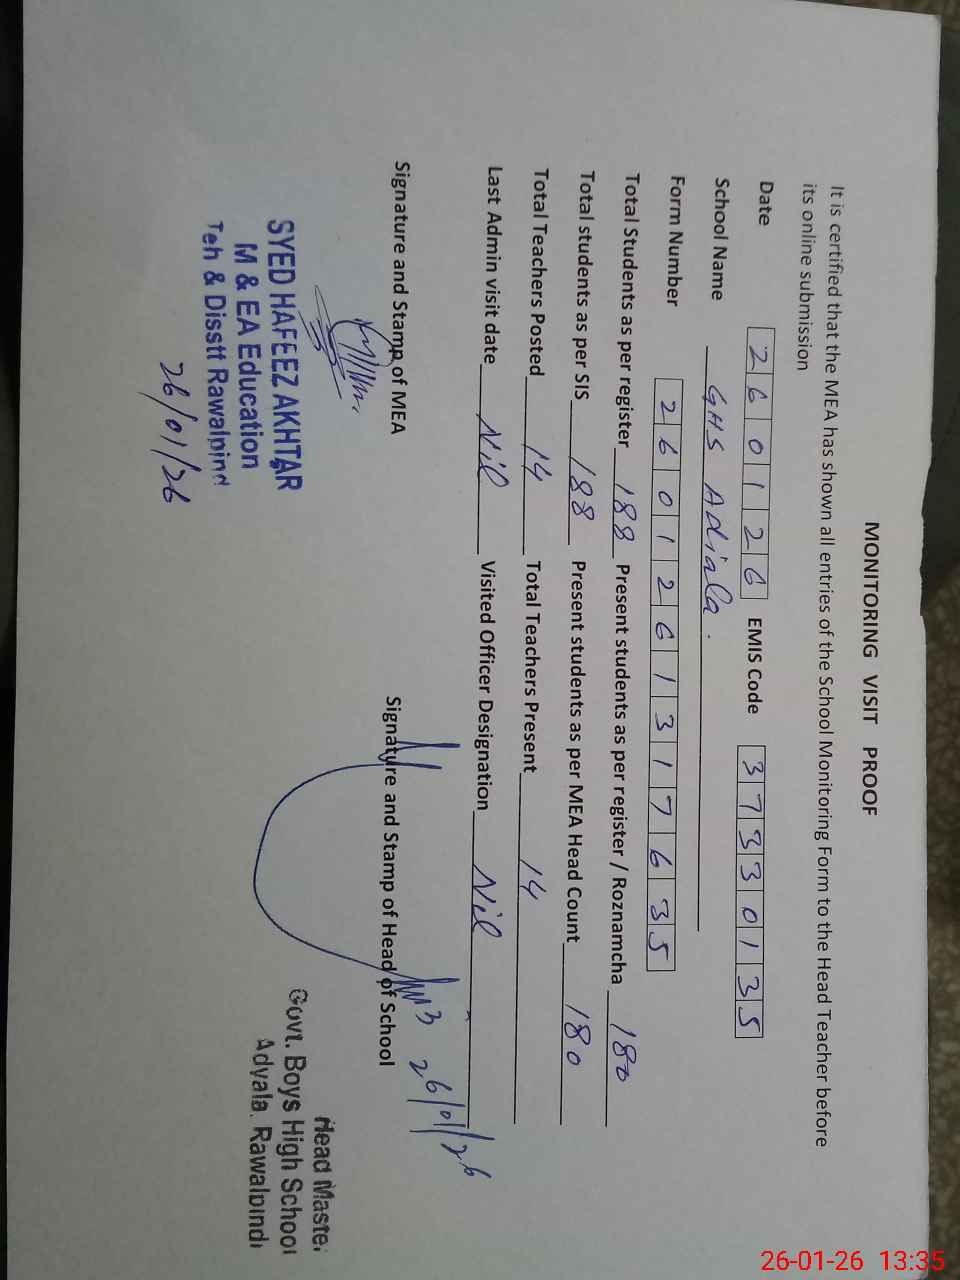 MONITORING VISIT PROOF
It is certified that the MEA has shown all entries of the School Monitoring Form to the Head Teacher before
its online submission
Date 260126 EMIS Code 37330135
School Name GHS Adiala.
Form Number 2601261317635
Total Students as per register 188 Present students as per register / Roznamcha 180
Total students as per SIS 188 Present students as per MEA Head Count 180
Total Teachers Posted 14 Total Teachers Present 14
Last Admin visit date Nil Visited Officer Designation Nil
Signature and Stamp of MEA Signature and Stamp of Head of School
26/01/26
SYED HAFEEZ AKHTAR
M & EA Education
Teh & Disstt Rawalpind
26/01/26
Head Master
Govt. Boys High School
Adyala. Rawalpindi
26-01-26 13:35